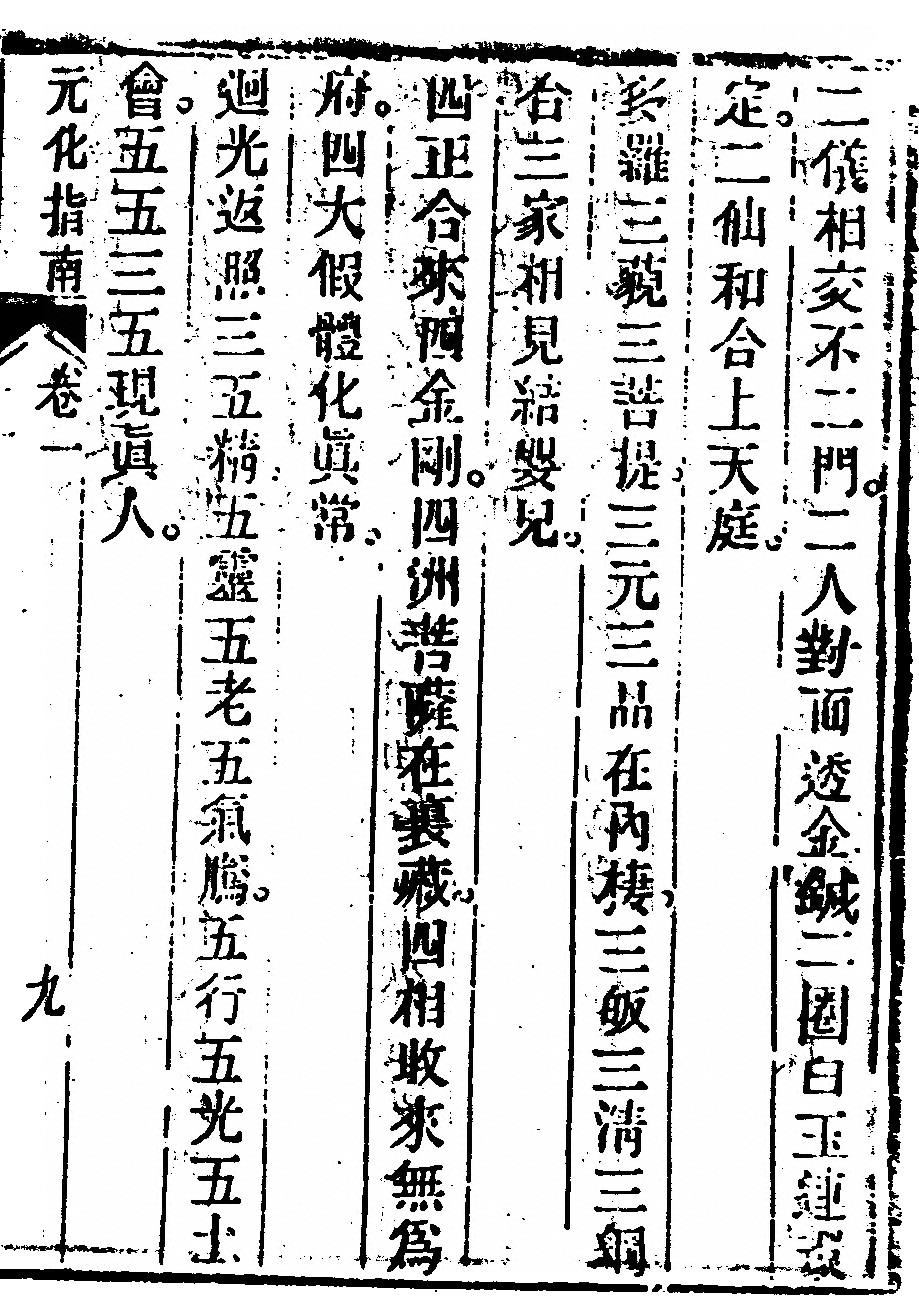 二儀相交不二門。二人對面透金鍼二圈白玉蓮臺
定。二仙和合上天庭。
羅三藐三菩提。三元三品在內棲。三皈三清三綱
合三家相見結嬰兒。
四正合來四金剛。四洲菩薩在裏藏。四相收來無為
府。四大假體化眞常。
迴光返照三五精五靈五老五氣騰。五行五光五土
會。五五三五現眞人。
元化指南 卷一 九